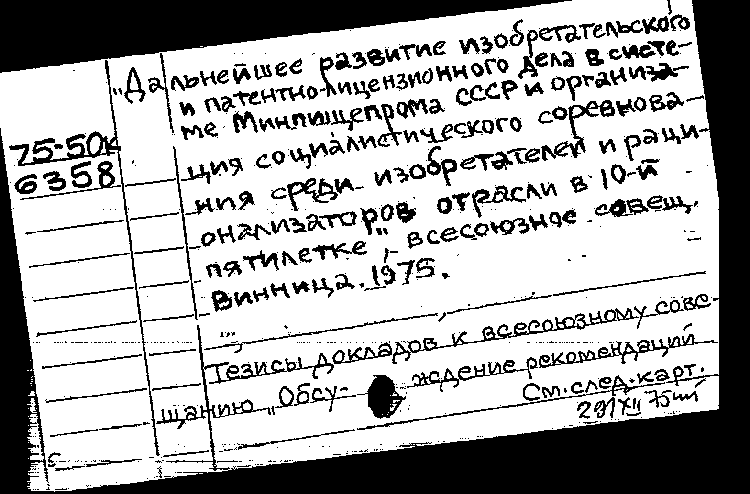 „Дальнейшее развитие изобретательского
и патентно-лицензионного дела в систе-
ме Минпищепрома СССР и организа-
75-50к
ция социалистического соревнова-
6358
ния среди изобретателей и раци-
онализаторов отрасли в 10-й
пятилетке", всесоюзное совещ.
Винница. 1975.
Тезисы докладов к всесоюзному сове-
щанию „Обсуждение рекомендаций
См. след. карт.
29/XII 75